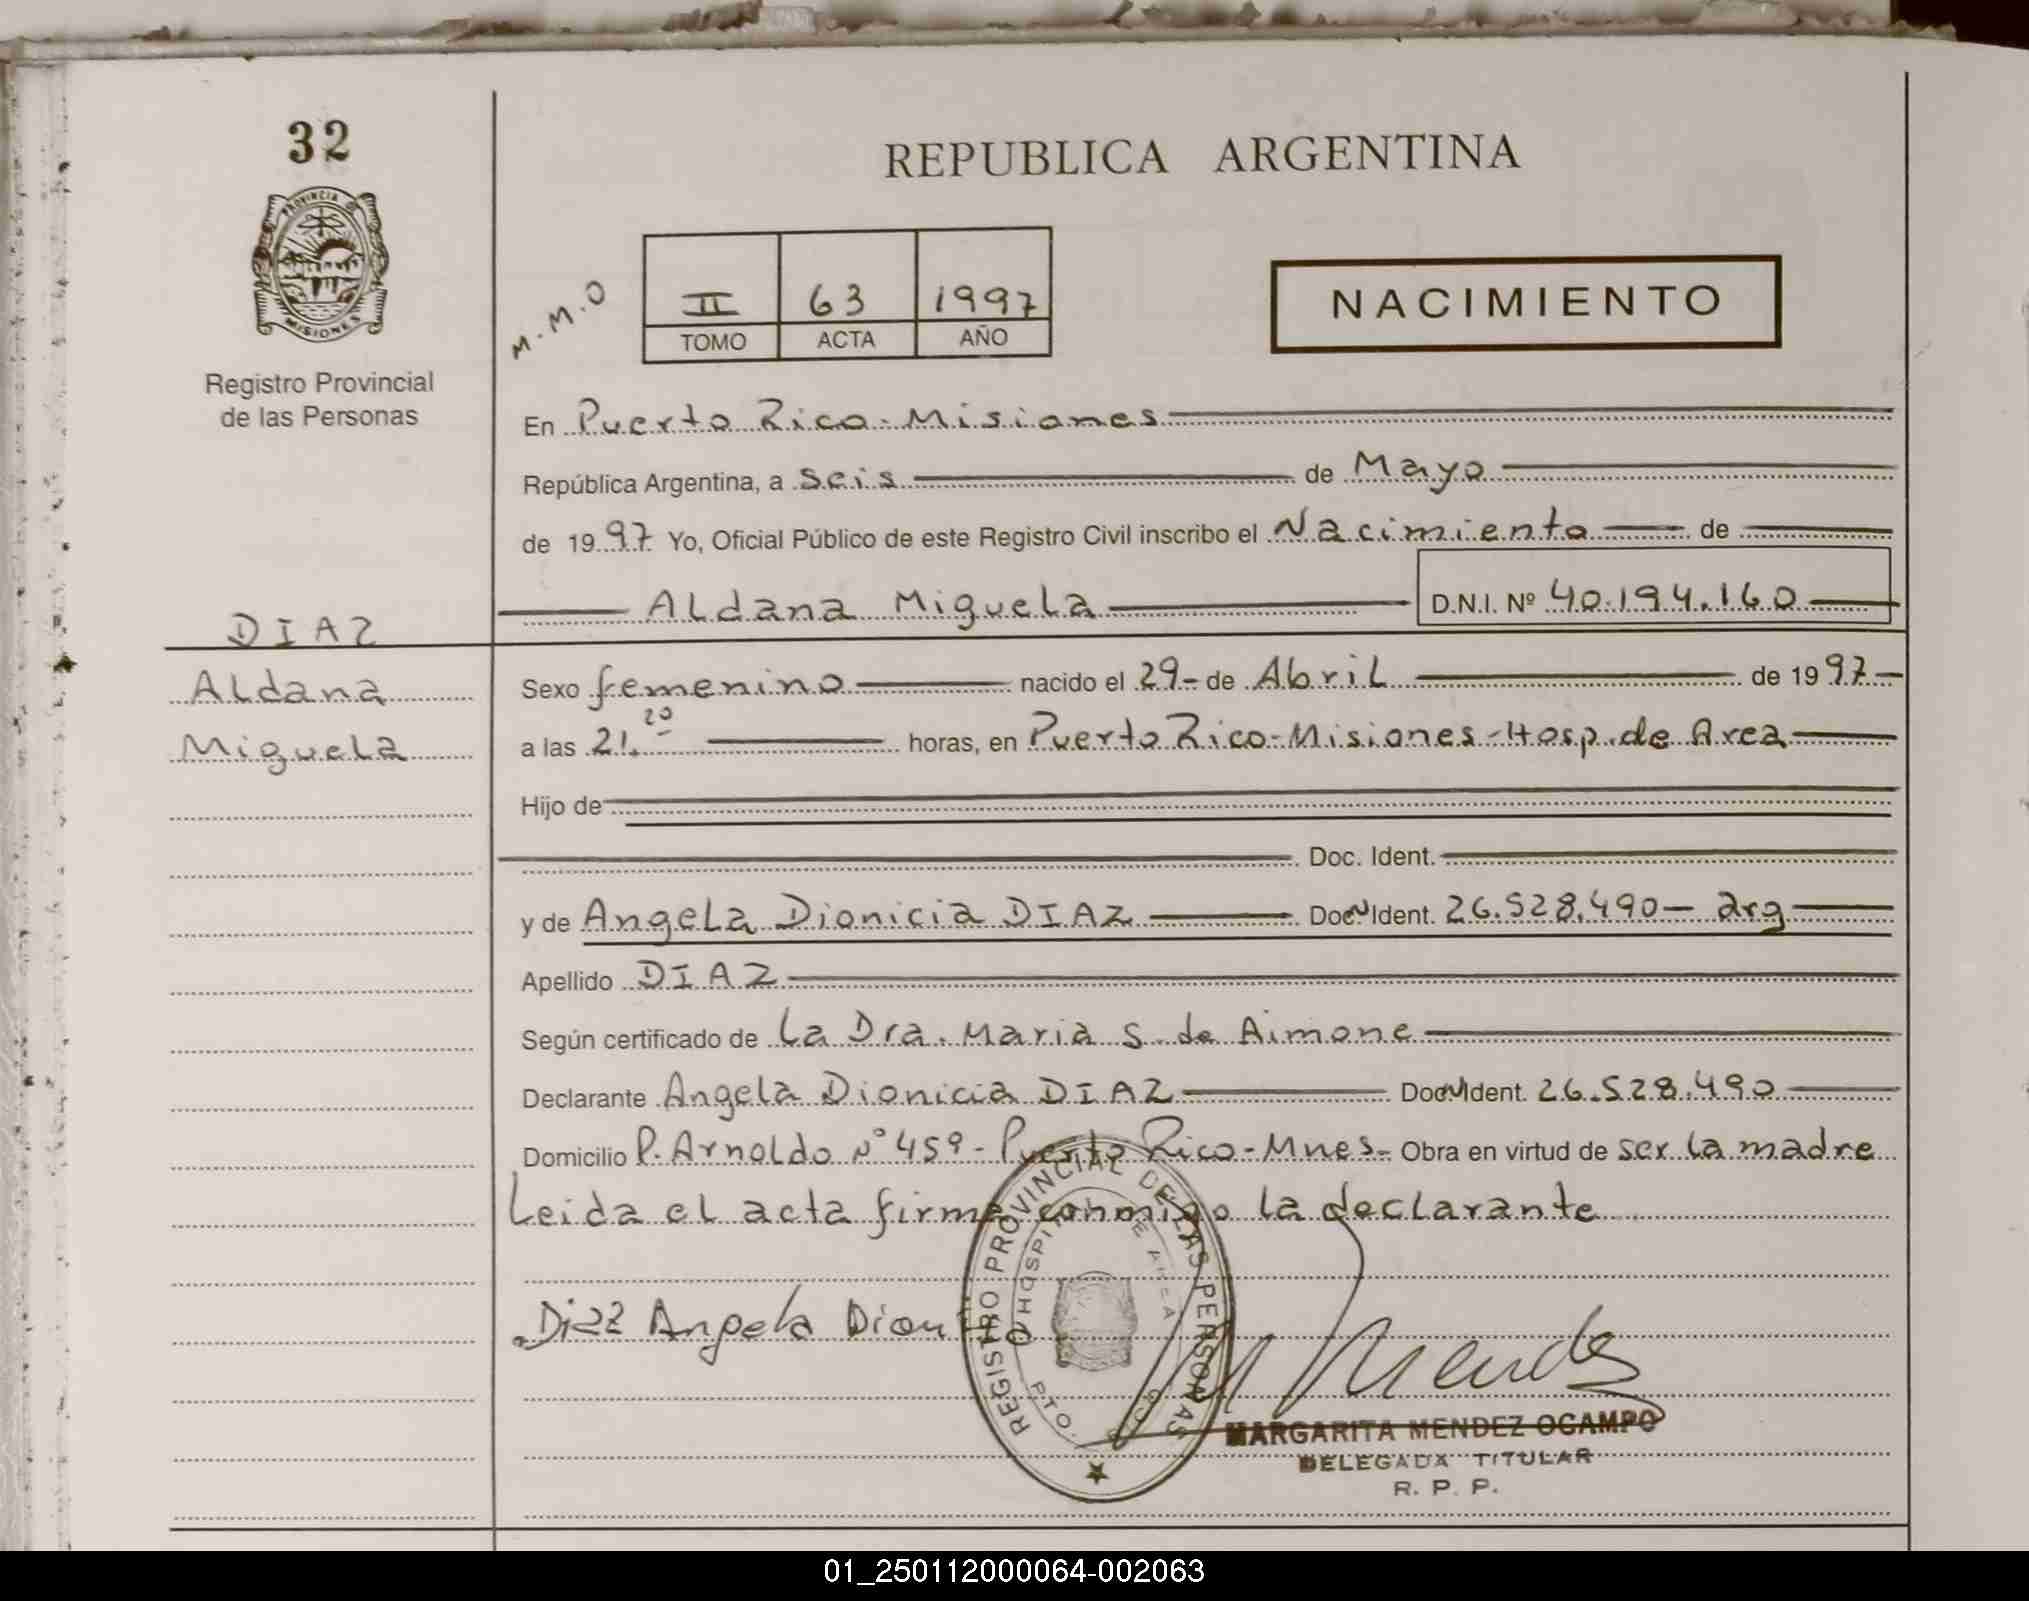 32
REPUBLICA ARGENTINA
PROVINCIA DE
MISIONES
M.M.O
II 63 1997
TOMO ACTA AÑO
NACIMIENTO
Registro Provincial
de las Personas
En Puerto Rico - Misiones
República Argentina, a seis de Mayo
de 1997 Yo, Oficial Público de este Registro Civil inscribo el Nacimiento de
Aldana Miguela D.N.I. Nº 40.194.160
DIAZ
Aldana
Miguela
Sexo femenino nacido el 29- de Abril de 1997-
a las 21.20 horas, en Puerto Rico - Misiones - Hosp. de Area
Hijo de
Doc. Ident.
y de Angela Dionicia DIAZ Doc Ident. 26.528.490 - arg
Apellido DIAZ
Según certificado de la Dra. Maria S. de Aimone
Declarante Angela Dionicia DIAZ Doc Ident. 26.528.490
Domicilio P. Arnoldo Nº 459 - Puerto Rico - Mnes - Obra en virtud de ser la madre
Leida el acta firma conmigo la declarante
Diaz Angela Dion
REGISTRO PROVINCIAL DE LAS PERSONAS
PTO.
Mendez
MARGARITA MENDEZ OCAMPO
DELEGADA TITULAR
R. P. P.
01_250112000064-002063